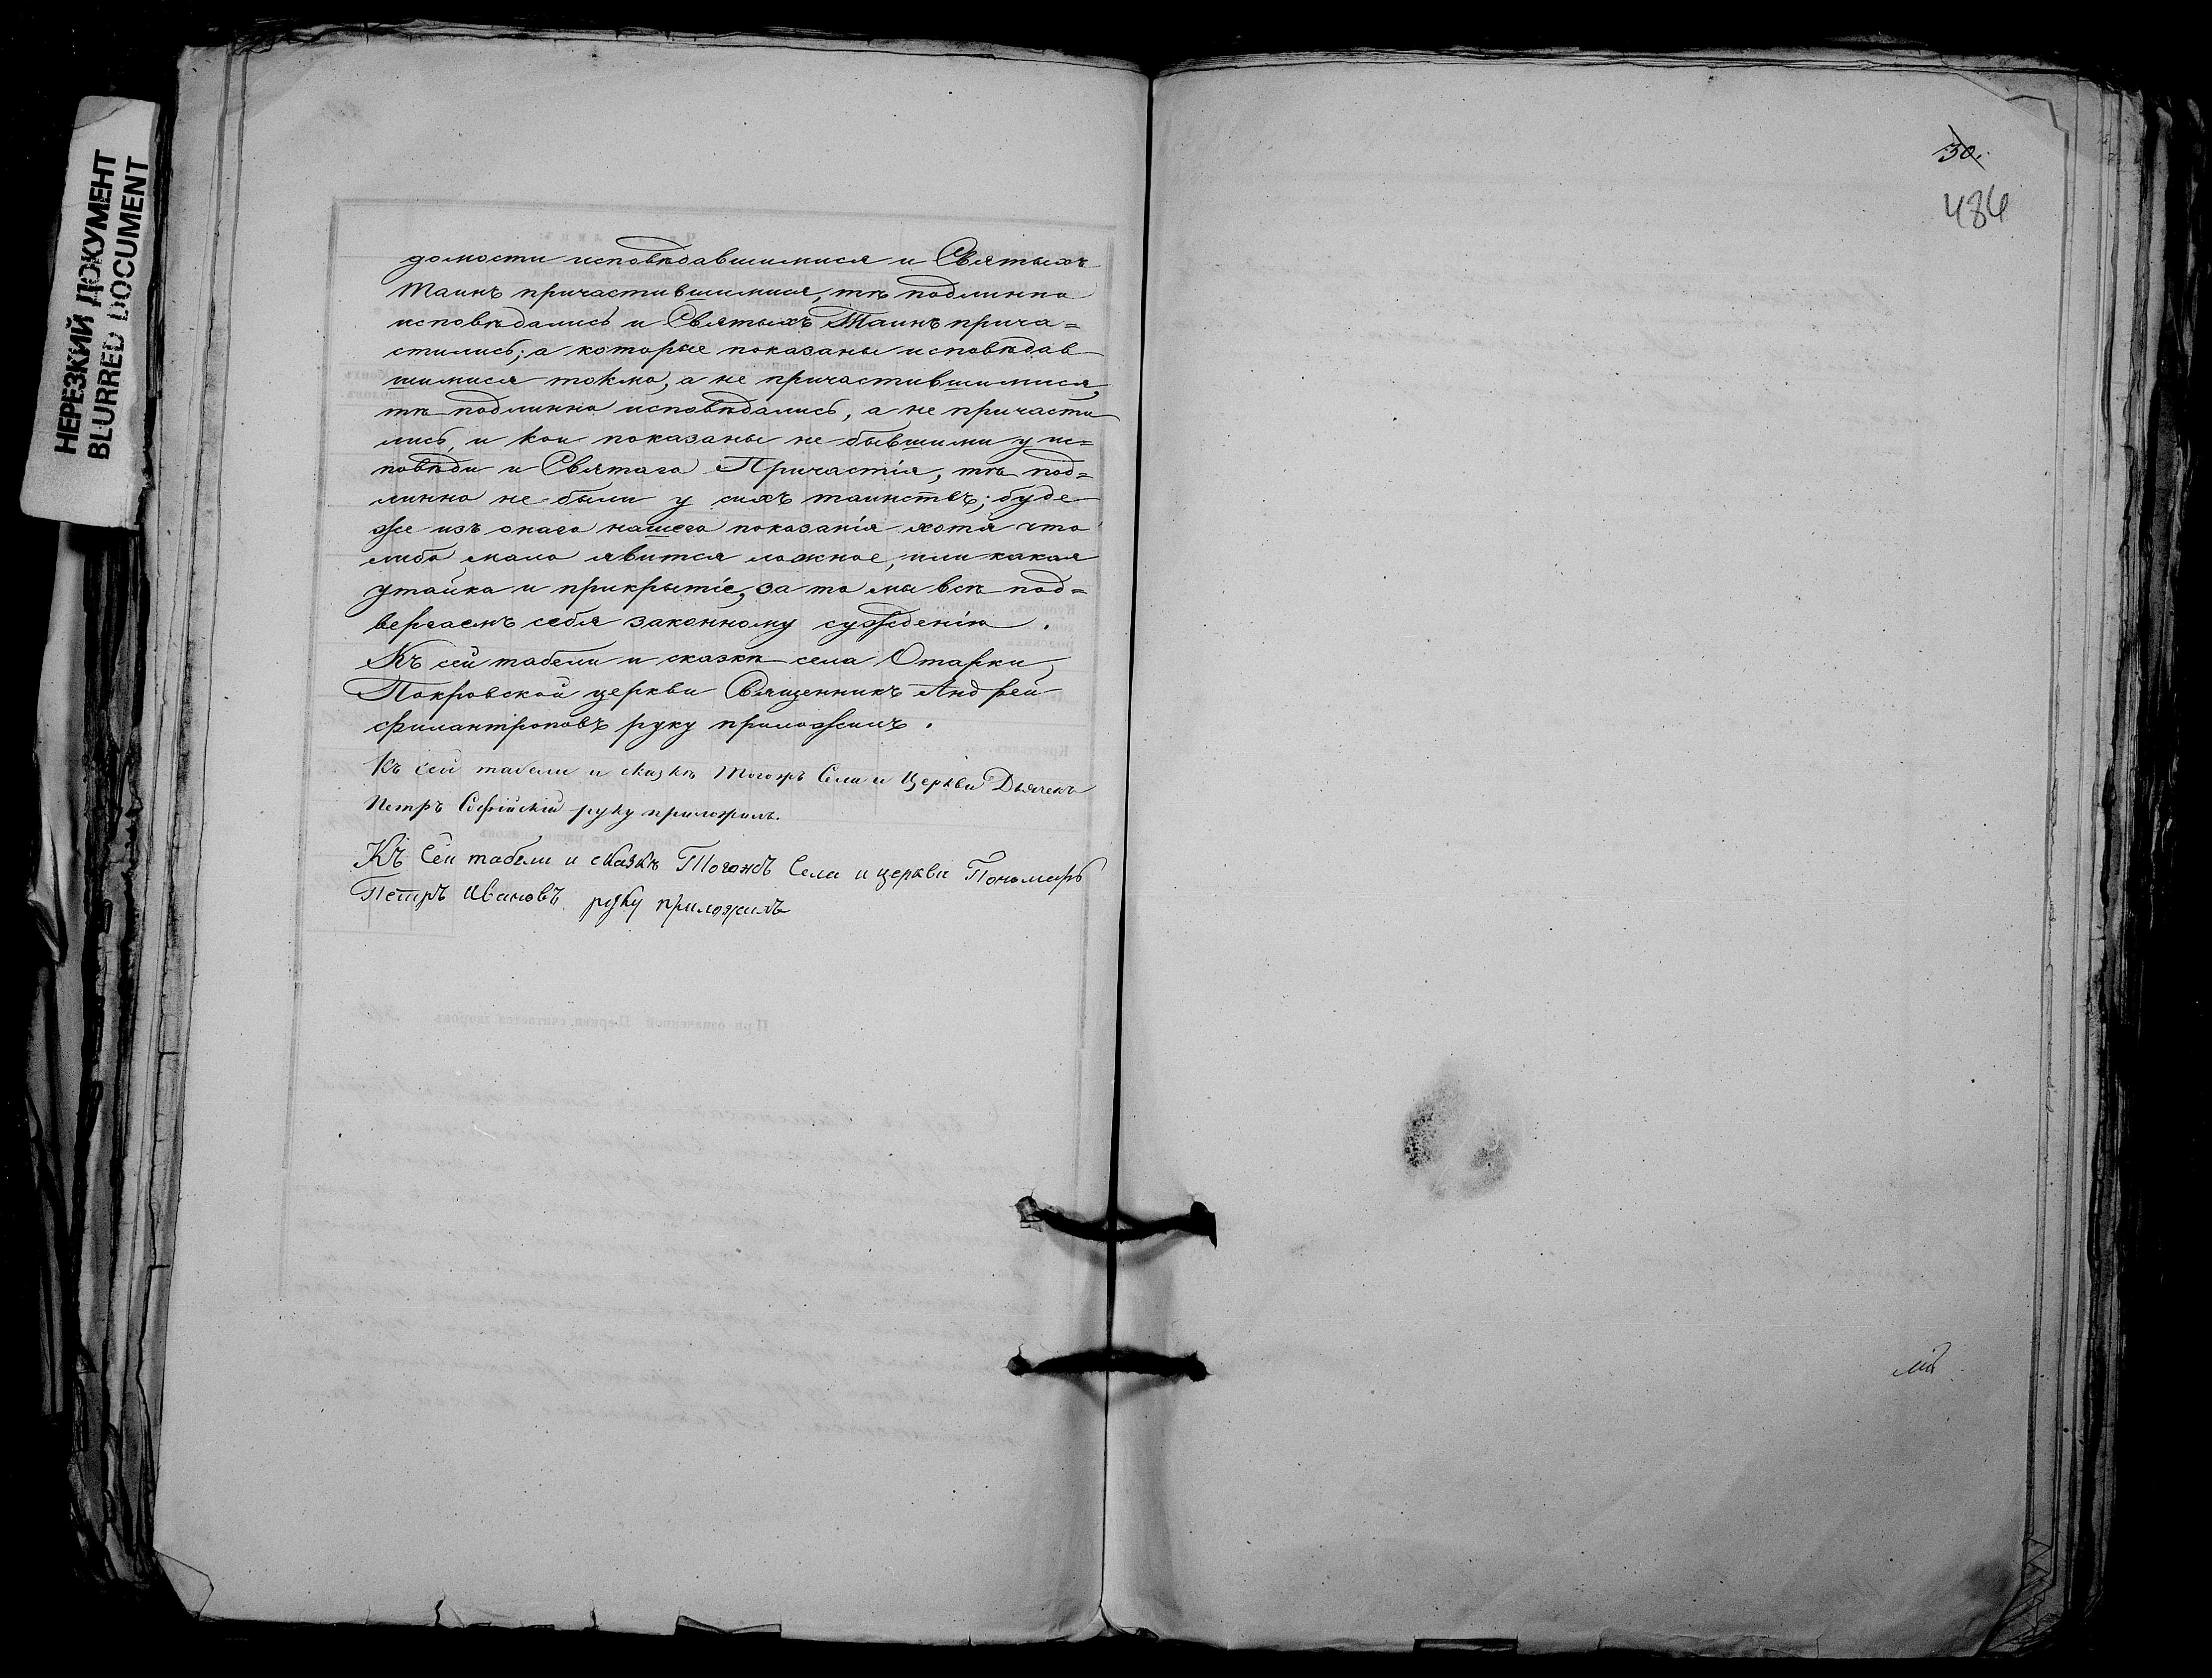 НЕРЕЗКИЙ ДОКУМЕНТ
BLURRED DOCUMENT
домости исповѣдавшимися и Святыхъ
Таинъ причастившимися, тѣ подлинно
исповѣдались и Святыхъ Таинъ прича=
стились; а которые показаны исповѣдав
шимися токмо, а не причастившимися,
тѣ подлинно исповѣдались, а не причасти
лись, и кои показаны не бывшими у ис=
повѣди и Святаго Причастія, тѣ под=
линно не были у сихъ таинствъ; буде
же изъ онаго нашего показанія хотя что
либо мало явится ложное, или какая
утайка и прикрытіе, за то мы всѣ под=
вергаемъ себя законному сужденію.
Къ сей табели и сказкѣ села Отарки
Покровской церкви Священникъ Андрей
Филантроповъ руку приложилъ.
Къ сей табели и сказкѣ тогожъ Села и Церкви Дьячекъ
Петръ Софійскій руку приложилъ.
Къ Сей табели и сказкѣ Тогожъ Села и церкви Пономарь
Петръ Ивановъ руку приложилъ
30.
486